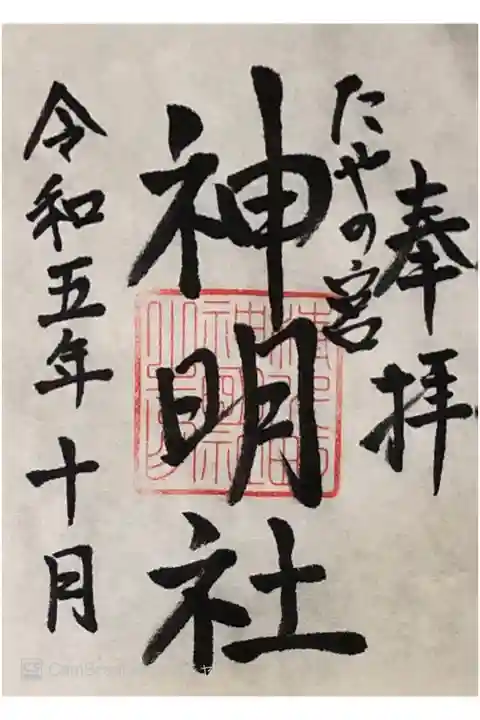 奉拝
たやの宮
神明社
令和五年十月
CamScanner